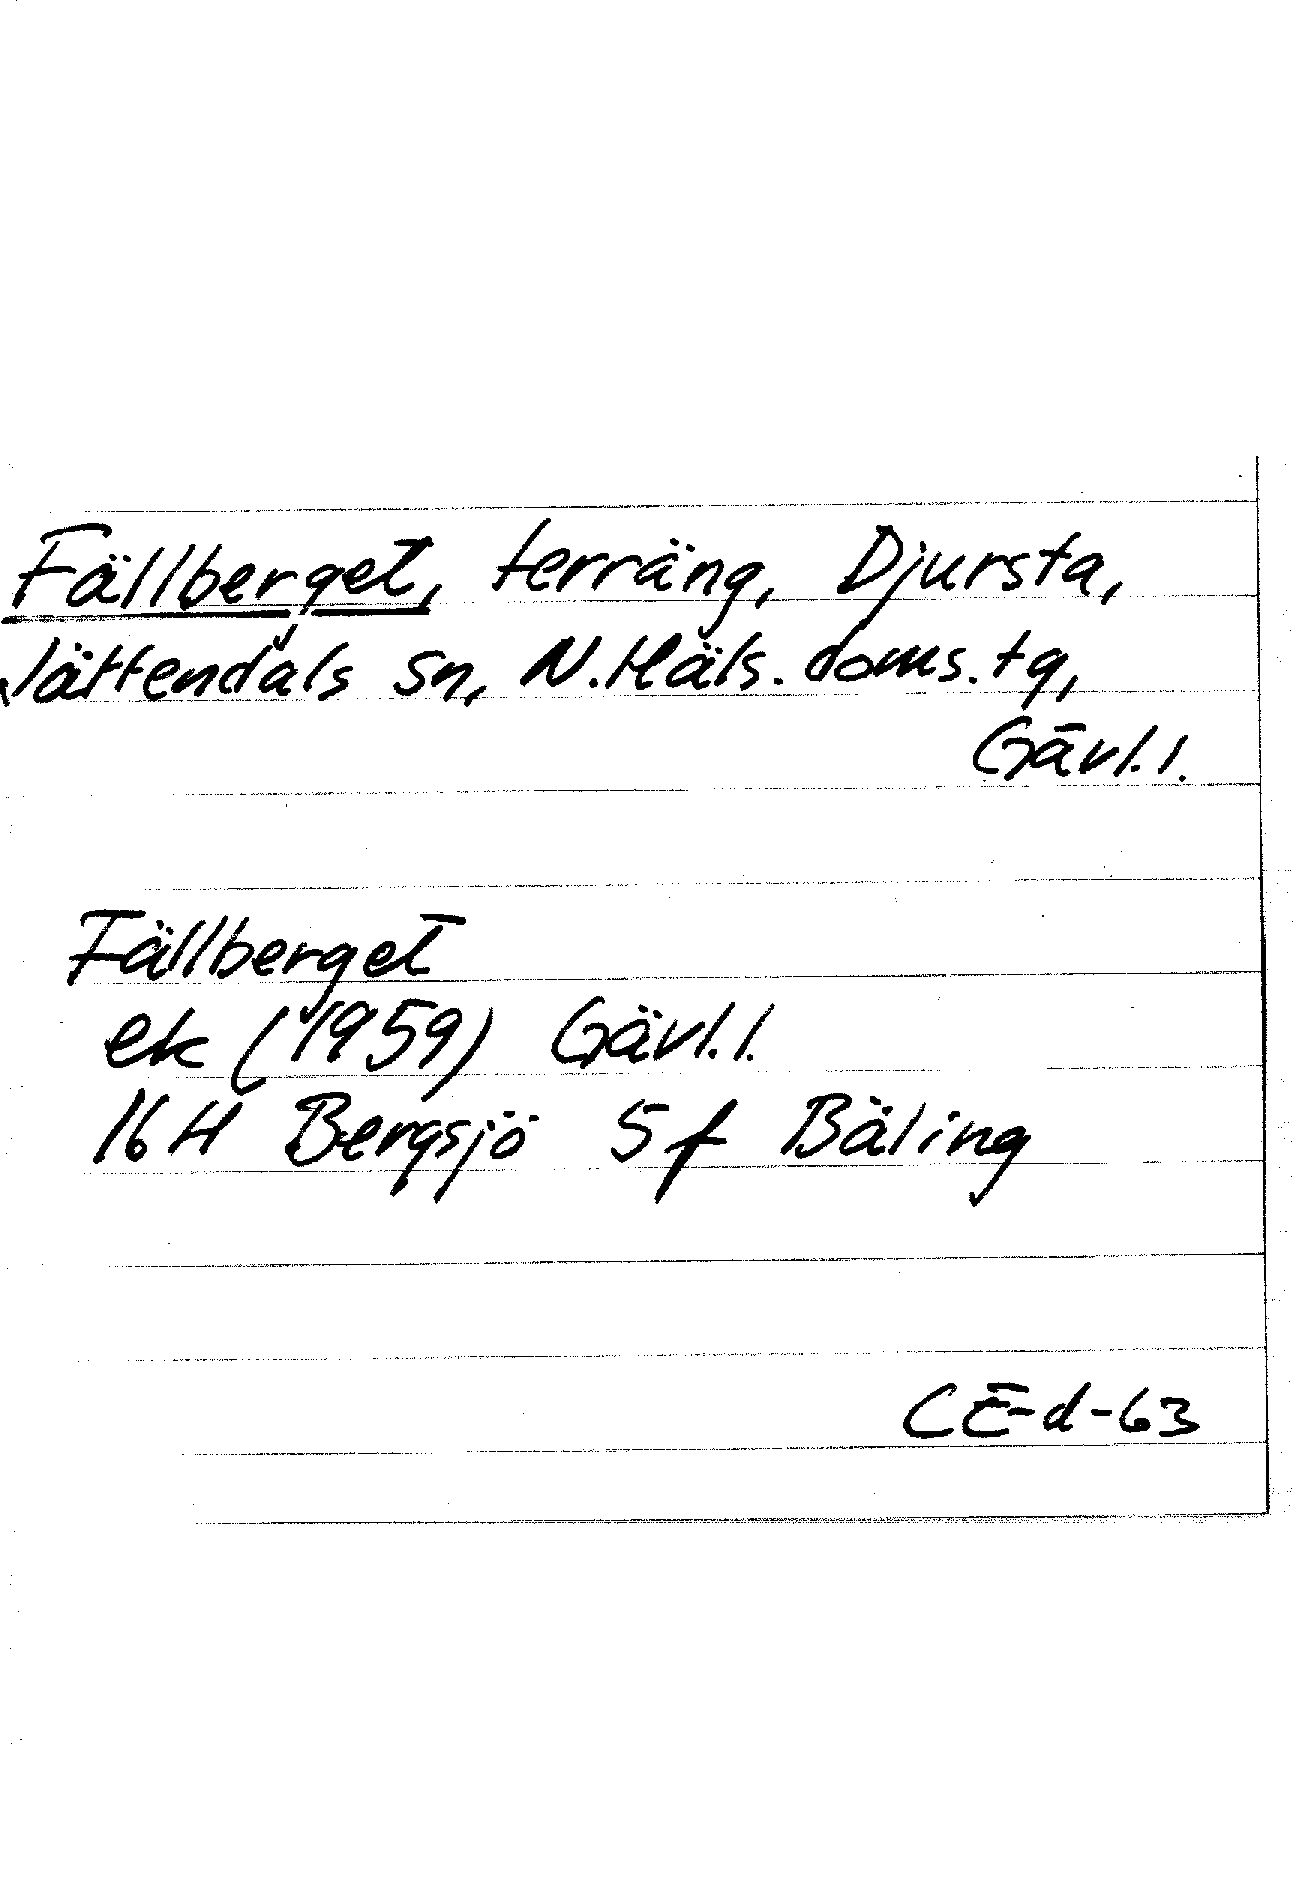 Fällberget, terräng, Djursta,
Jättendals sn, N.Häls.doms.tg,
Gävl.l.
Fällberget
ek (1959) Gävl.l.
16H Bergsjö 5f Bäling
CE-d-63